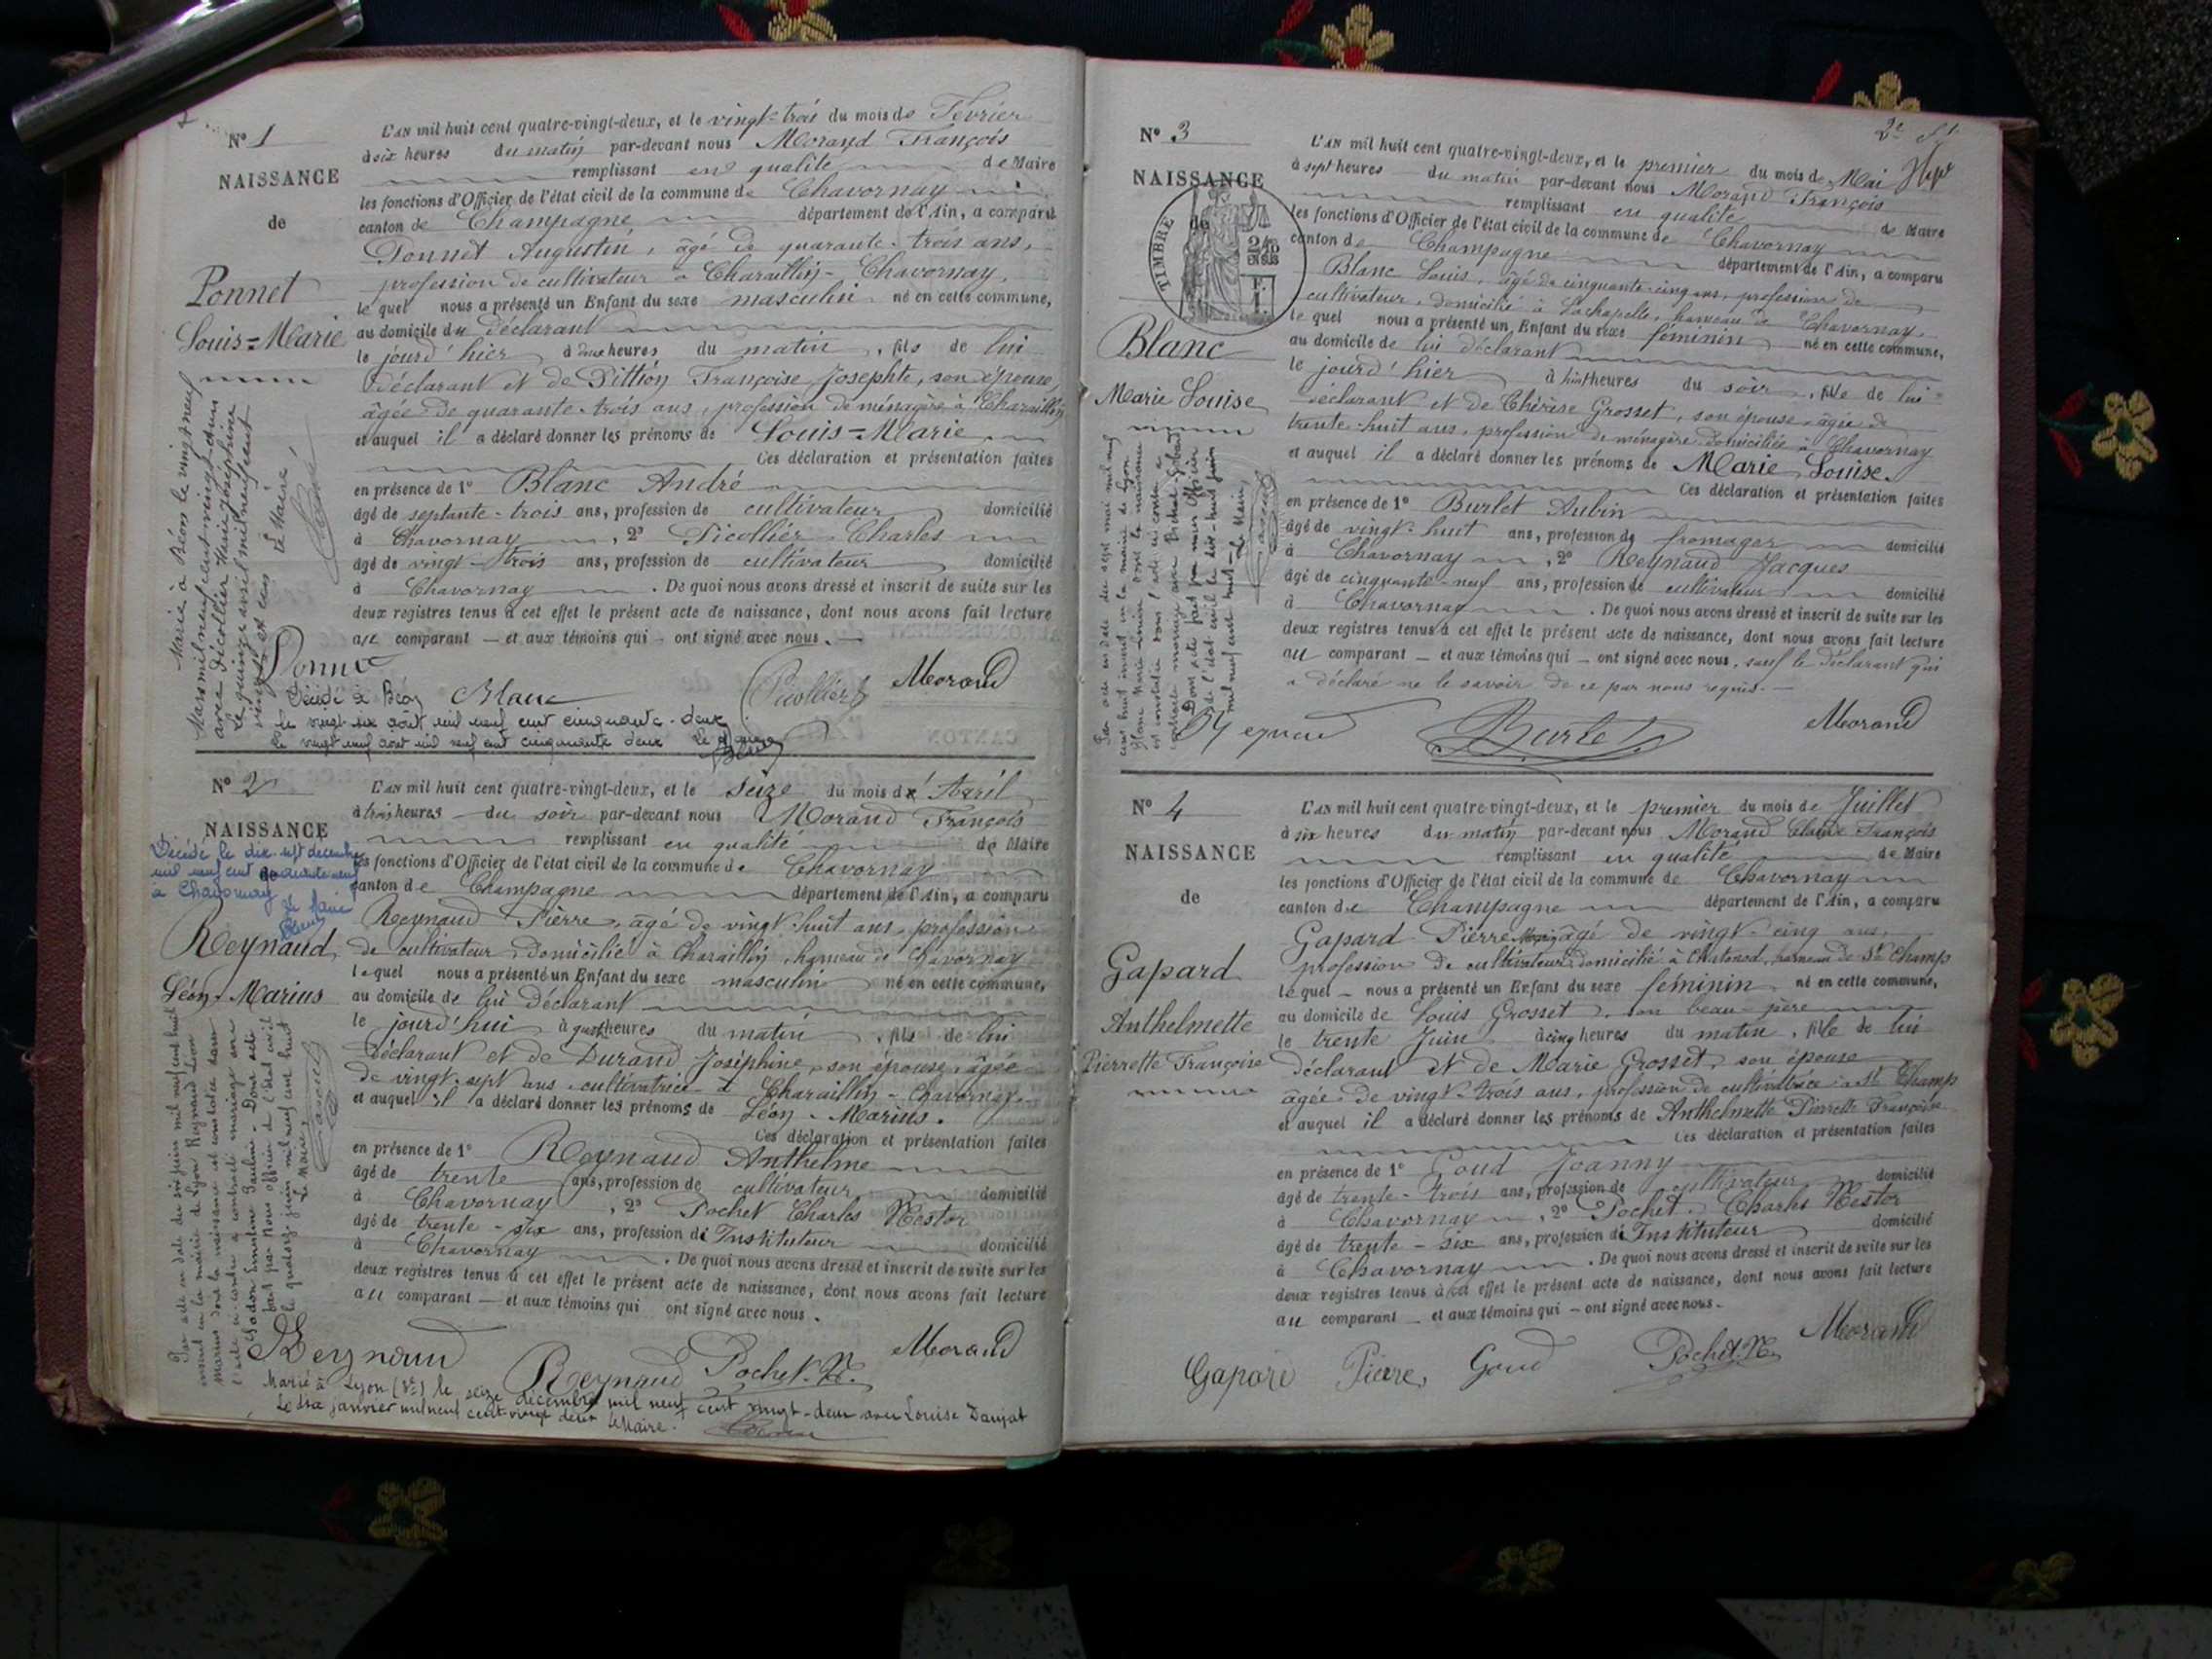 N° 1
NAISSANCE
de
Ponnet
Louis-Marie
L'AN mil huit cent quatre-vingt-deux, et le vingt-trois du mois de Février
à six heures du matin par-devant nous Morand François
remplissant en qualité de Maire
les fonctions d'Officier de l'état civil de la commune de Chavornay
canton de Champagne département de l'Ain, a comparu
Ponnet Augustin, âgé de quarante-trois ans,
profession de cultivateur à Charaillin-Chavornay,
le quel nous a présenté un Enfant du sexe masculin né en cette commune,
au domicile du déclarant
le jourd'hier à deux heures du matin, fils de lui
déclarant et de Pittion Françoise Josephte, son épouse,
âgée de quarante-trois ans, profession de ménagère à Charaillin
et auquel il a déclaré donner les prénoms de Louis-Marie
Ces déclaration et présentation faites
en présence de 1° Blanc André
âgé de septante-trois ans, profession de cultivateur domicilié
à Chavornay, 2° Picollier Charles
âgé de vingt-trois ans, profession de cultivateur domicilié
à Chavornay. De quoi nous avons dressé et inscrit de suite sur les
deux registres tenus à cet effet le présent acte de naissance, dont nous avons fait lecture
au comparant et aux témoins qui ont signé avec nous.
Marié à Béon le vingt neuf
Mars mil neuf cent vingt cinq
avec Picollier Marie Joséphine
le quinze avril mil neuf cent
vingt cinq
le Maire,
Ponnet
Blanc
Picollier
Morand
Décédé à Béon
le vingt-six août mil neuf cent cinquante-deux
le vingt neuf août mil neuf cent cinquante deux Le Maire
N° 2
NAISSANCE
de
Décédé le dix-sept décembre
mil neuf cent quarante neuf
à Chavornay
le Maire
Reynaud
Léon-Marius
L'AN mil huit cent quatre-vingt-deux, et le seize du mois d'Avril
à trois heures du soir par-devant nous Morand François
remplissant en qualité de Maire
les fonctions d'Officier de l'état civil de la commune de Chavornay
canton de Champagne département de l'Ain, a comparu
Reynaud Pierre, âgé de vingt-huit ans, profession
de cultivateur domicilié à Charaillin, hameau de Chavornay
lequel nous a présenté un Enfant du sexe masculin né en cette commune,
au domicile de lui déclarant
le jourd'hui à quatre heures du matin, fils de lui
déclarant et de Durand Joséphine, son épouse, âgée
de vingt-sept ans, cultivatrice à Charaillin-Chavornay
et auquel il a déclaré donner les prénoms de Léon-Marius.
Ces déclaration et présentation faites
en présence de 1° Reynaud Anthelme
âgé de trente ans, profession de cultivateur domicilié
à Chavornay, 2° Pochet Charles Nestor
âgé de trente-six ans, profession d'Instituteur domicilié
à Chavornay. De quoi nous avons dressé et inscrit de suite sur les
deux registres tenus à cet effet le présent acte de naissance, dont nous avons fait lecture
au comparant et aux témoins qui ont signé avec nous.
Par acte en date du six juin mil neuf cent huit
inscrit en la mairie de Lyon Reynaud Léon
Marius dont la naissance est constatée dans
l'acte ci-contre a contracté mariage avec
Emeline Pauline - Dont acte
fait par nous officier de l'état civil
le quatorze juin mil neuf cent huit
Le Maire,
Reynaud
Reynaud
Pochet. N.
Morand
Marié à Lyon le seize décembre mil neuf cent vingt-deux avec Louise Daujat
Le dix janvier mil neuf cent vingt deux Le Maire.
2e
N° 3
NAISSANCE
de
TIMBRE
2/10 EN SUS
Blanc
Marie Louise
L'AN mil huit cent quatre-vingt-deux, et le premier du mois de Mai
à sept heures du matin par-devant nous Morand François
remplissant en qualité de Maire
les fonctions d'Officier de l'état civil de la commune de Chavornay
canton de Champagne département de l'Ain, a comparu
Blanc Louis, âgé de cinquante-cinq ans, profession de
cultivateur, domicilié à Lachapelle, hameau de Chavornay,
le quel nous a présenté un Enfant du sexe féminin né en cette commune,
au domicile de lui déclarant
le jourd'hier à huit heures du soir, fille de lui
déclarant et de Thérèse Grosset, son épouse, âgée de
trente-huit ans, profession de ménagère domiciliée à Chavornay
et auquel il a déclaré donner les prénoms de Marie Louise.
Ces déclaration et présentation faites
en présence de 1° Burlet Aubin
âgé de vingt-huit ans, profession de fromager domicilié
à Chavornay, 2° Reynaud Jacques
âgé de cinquante-neuf ans, profession de cultivateur domicilié
à Chavornay. De quoi nous avons dressé et inscrit de suite sur les
deux registres tenus à cet effet le présent acte de naissance, dont nous avons fait lecture
au comparant et aux témoins qui ont signé avec nous, sauf le déclarant qui
a déclaré ne le savoir de ce par nous requis.
Par acte en date du mai mil neuf
cent huit inscrit en la mairie de Lyon
Blanc Marie Louise dont la naissance
est constatée dans l'acte ci-contre a
contracté mariage avec
Dont acte fait par nous Officier
de l'état civil le dix-huit juin
mil neuf cent huit - Le Maire,
Burlet
Morand
N° 4
NAISSANCE
de
Gapard
Anthelmette
Pierrette Françoise
L'AN mil huit cent quatre-vingt-deux, et le premier du mois de Juillet
à six heures du matin par-devant nous Morand Claude François
remplissant en qualité de Maire
les fonctions d'Officier de l'état civil de la commune de Chavornay
canton de Champagne département de l'Ain, a comparu
Gapard Pierre âgé de vingt-cinq ans,
profession de cultivateur domicilié à Chatonod, hameau de St Champ
lequel nous a présenté un Enfant du sexe féminin né en cette commune,
au domicile de Louis Grosset, son beau-père
le trente Juin à cinq heures du matin, fille de lui
déclarant et de Marie Grosset, son épouse
âgée de vingt-trois ans, profession de cultivatrice à St Champ
et auquel il a déclaré donner les prénoms de Anthelmette Pierrette Françoise
Ces déclaration et présentation faites
en présence de 1° Goud Joanny
âgé de trente-trois ans, profession de cultivateur domicilié
à Chavornay, 2° Pochet Charles Nestor
âgé de trente-six ans, profession d'Instituteur domicilié
à Chavornay. De quoi nous avons dressé et inscrit de suite sur les
deux registres tenus à cet effet le présent acte de naissance, dont nous avons fait lecture
au comparant et aux témoins qui ont signé avec nous.
Gapard Pierre, Goud
Pochet. N.
Morand